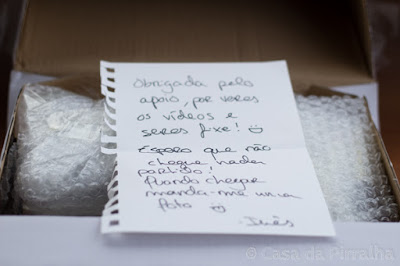 Obrigada pelo
apoio, por veres
os vídeos e
seres fixe! :)
Espero que não
chegue nada
partido!
Quando chegue
manda-me uma
foto :)
- Inês
© Casa da Pirralha